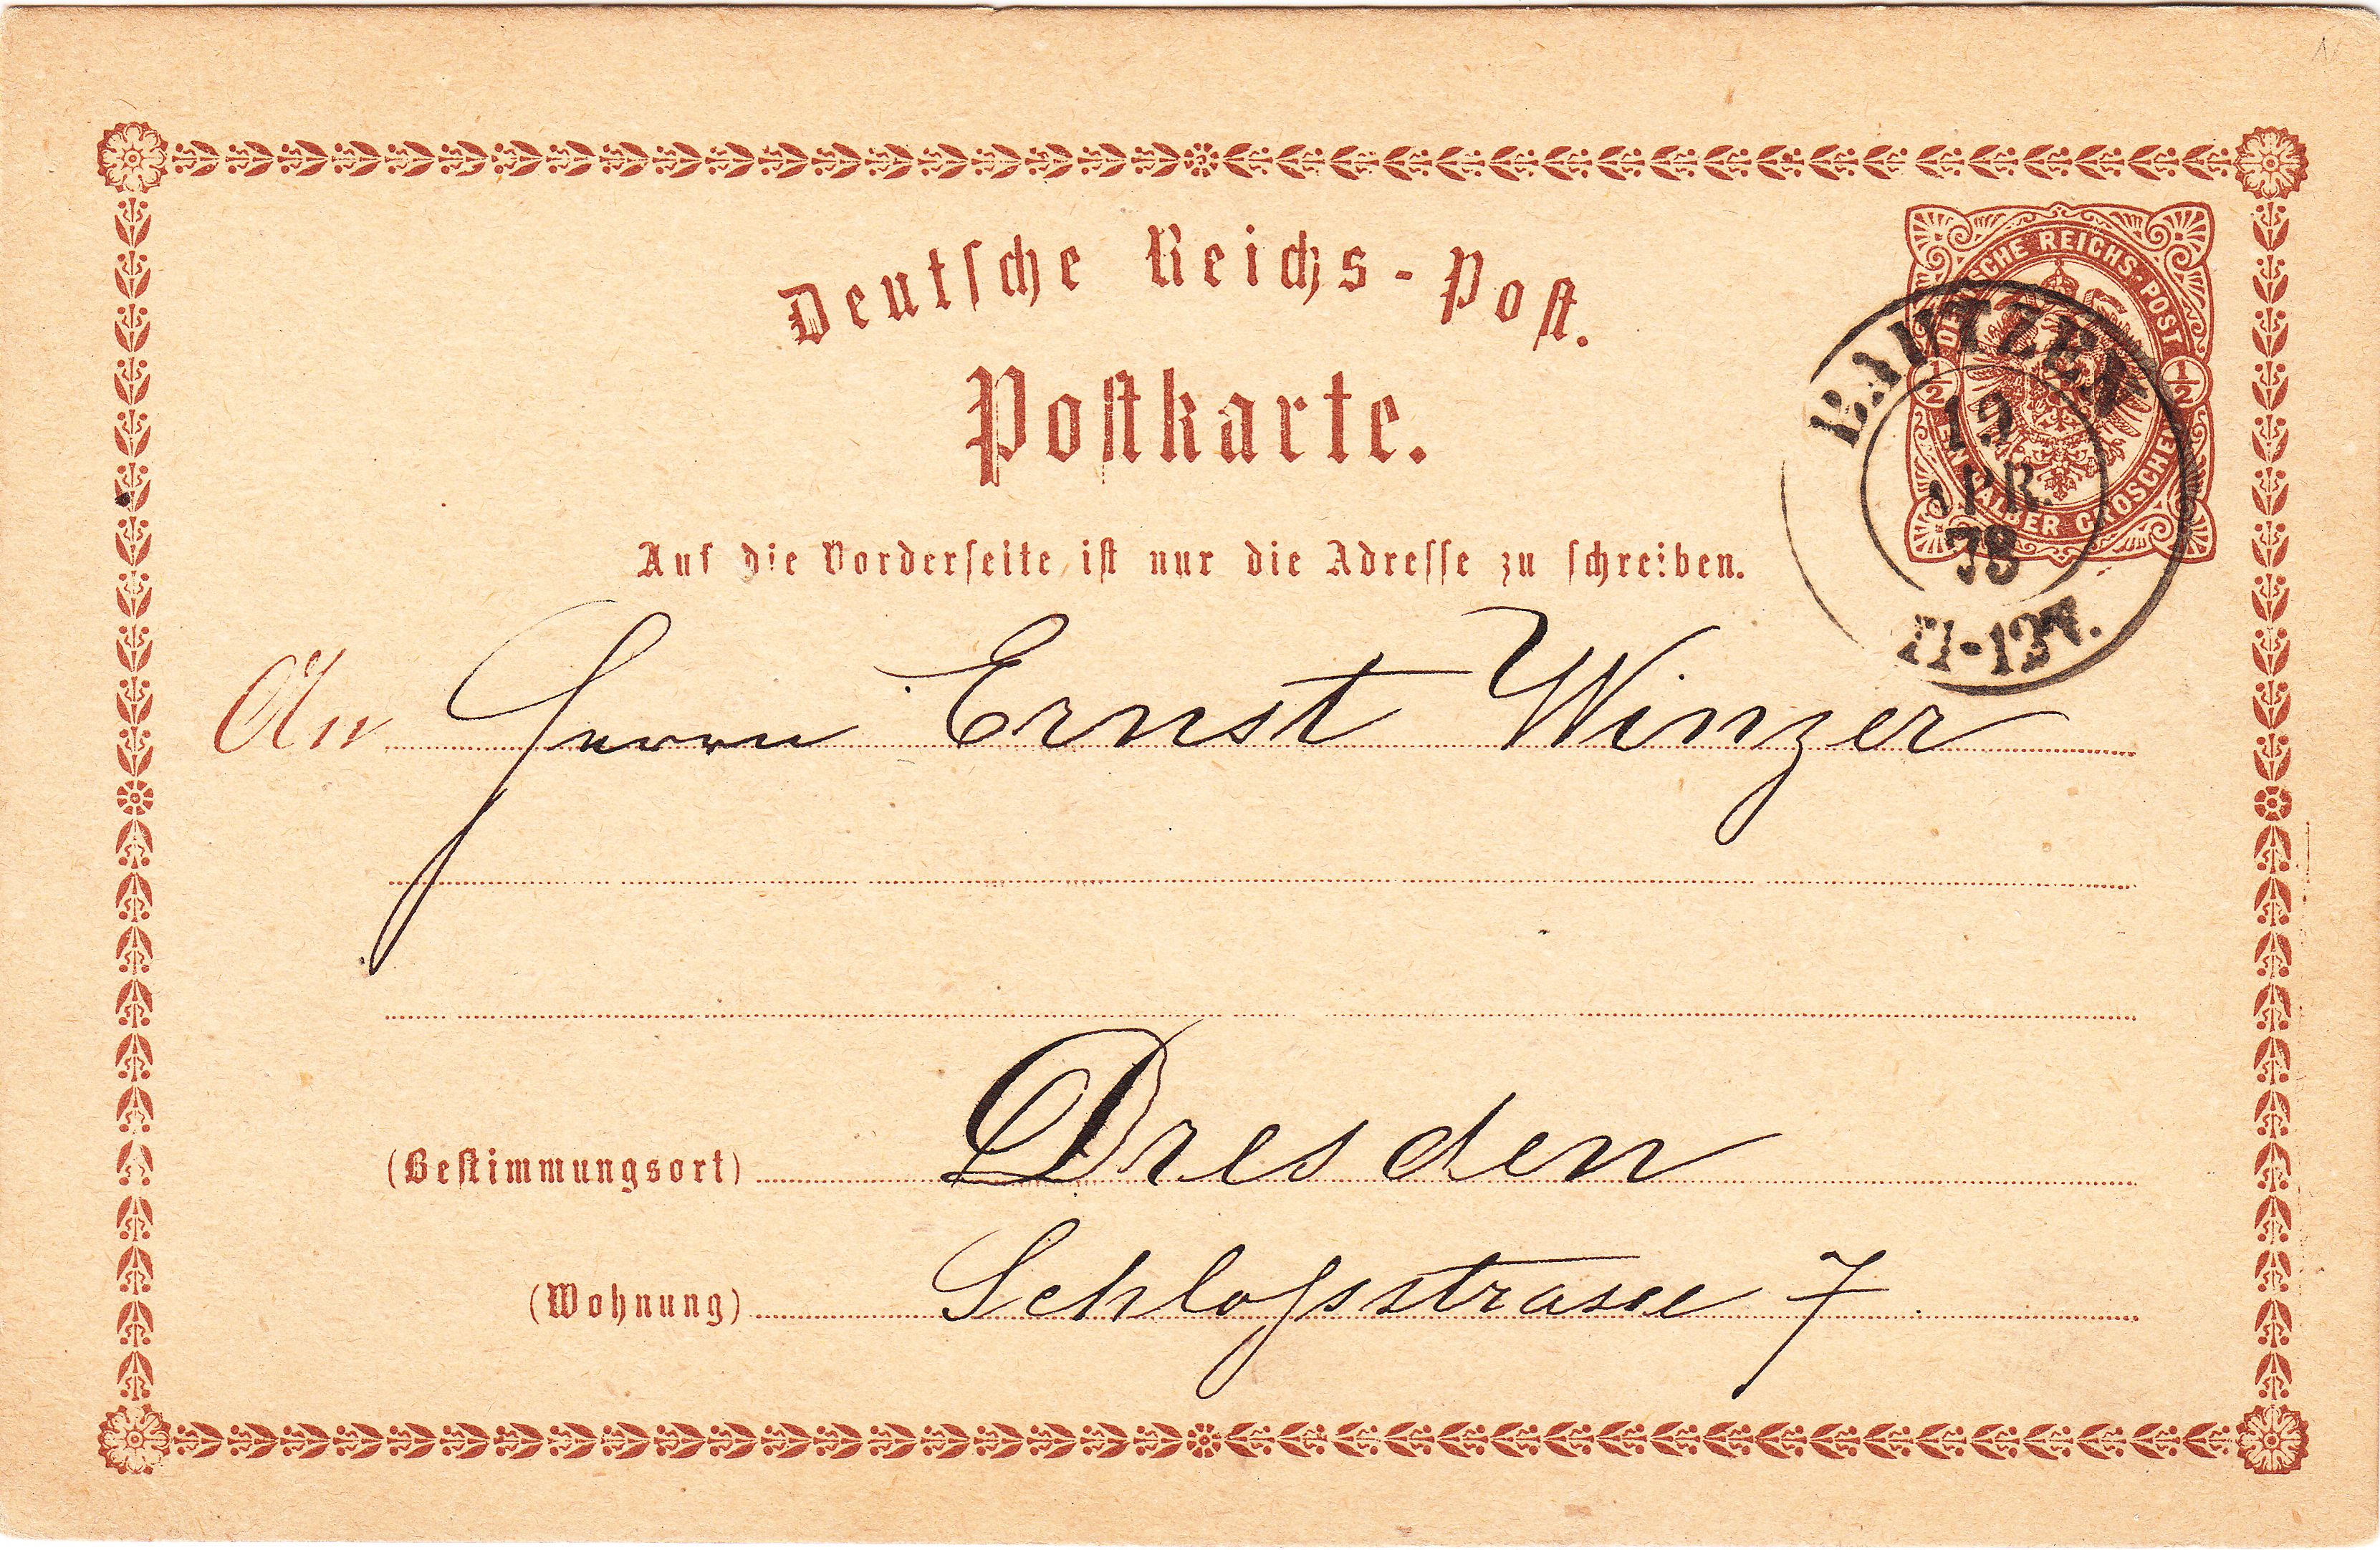 Deutsche Reichs-Post.
Postkarte.
DEUTSCHE REICHS-POST
1/2 1/2
EIN HALBER GROSCHEN
BAUTZEN
19
APR.
78
11-12V.
Auf die Vorderseite ist nur die Adresse zu schreiben.
An Herrn Ernst Winzer
(Bestimmungsort) Dresden
(Wohnung) Schloßsstrasse 7